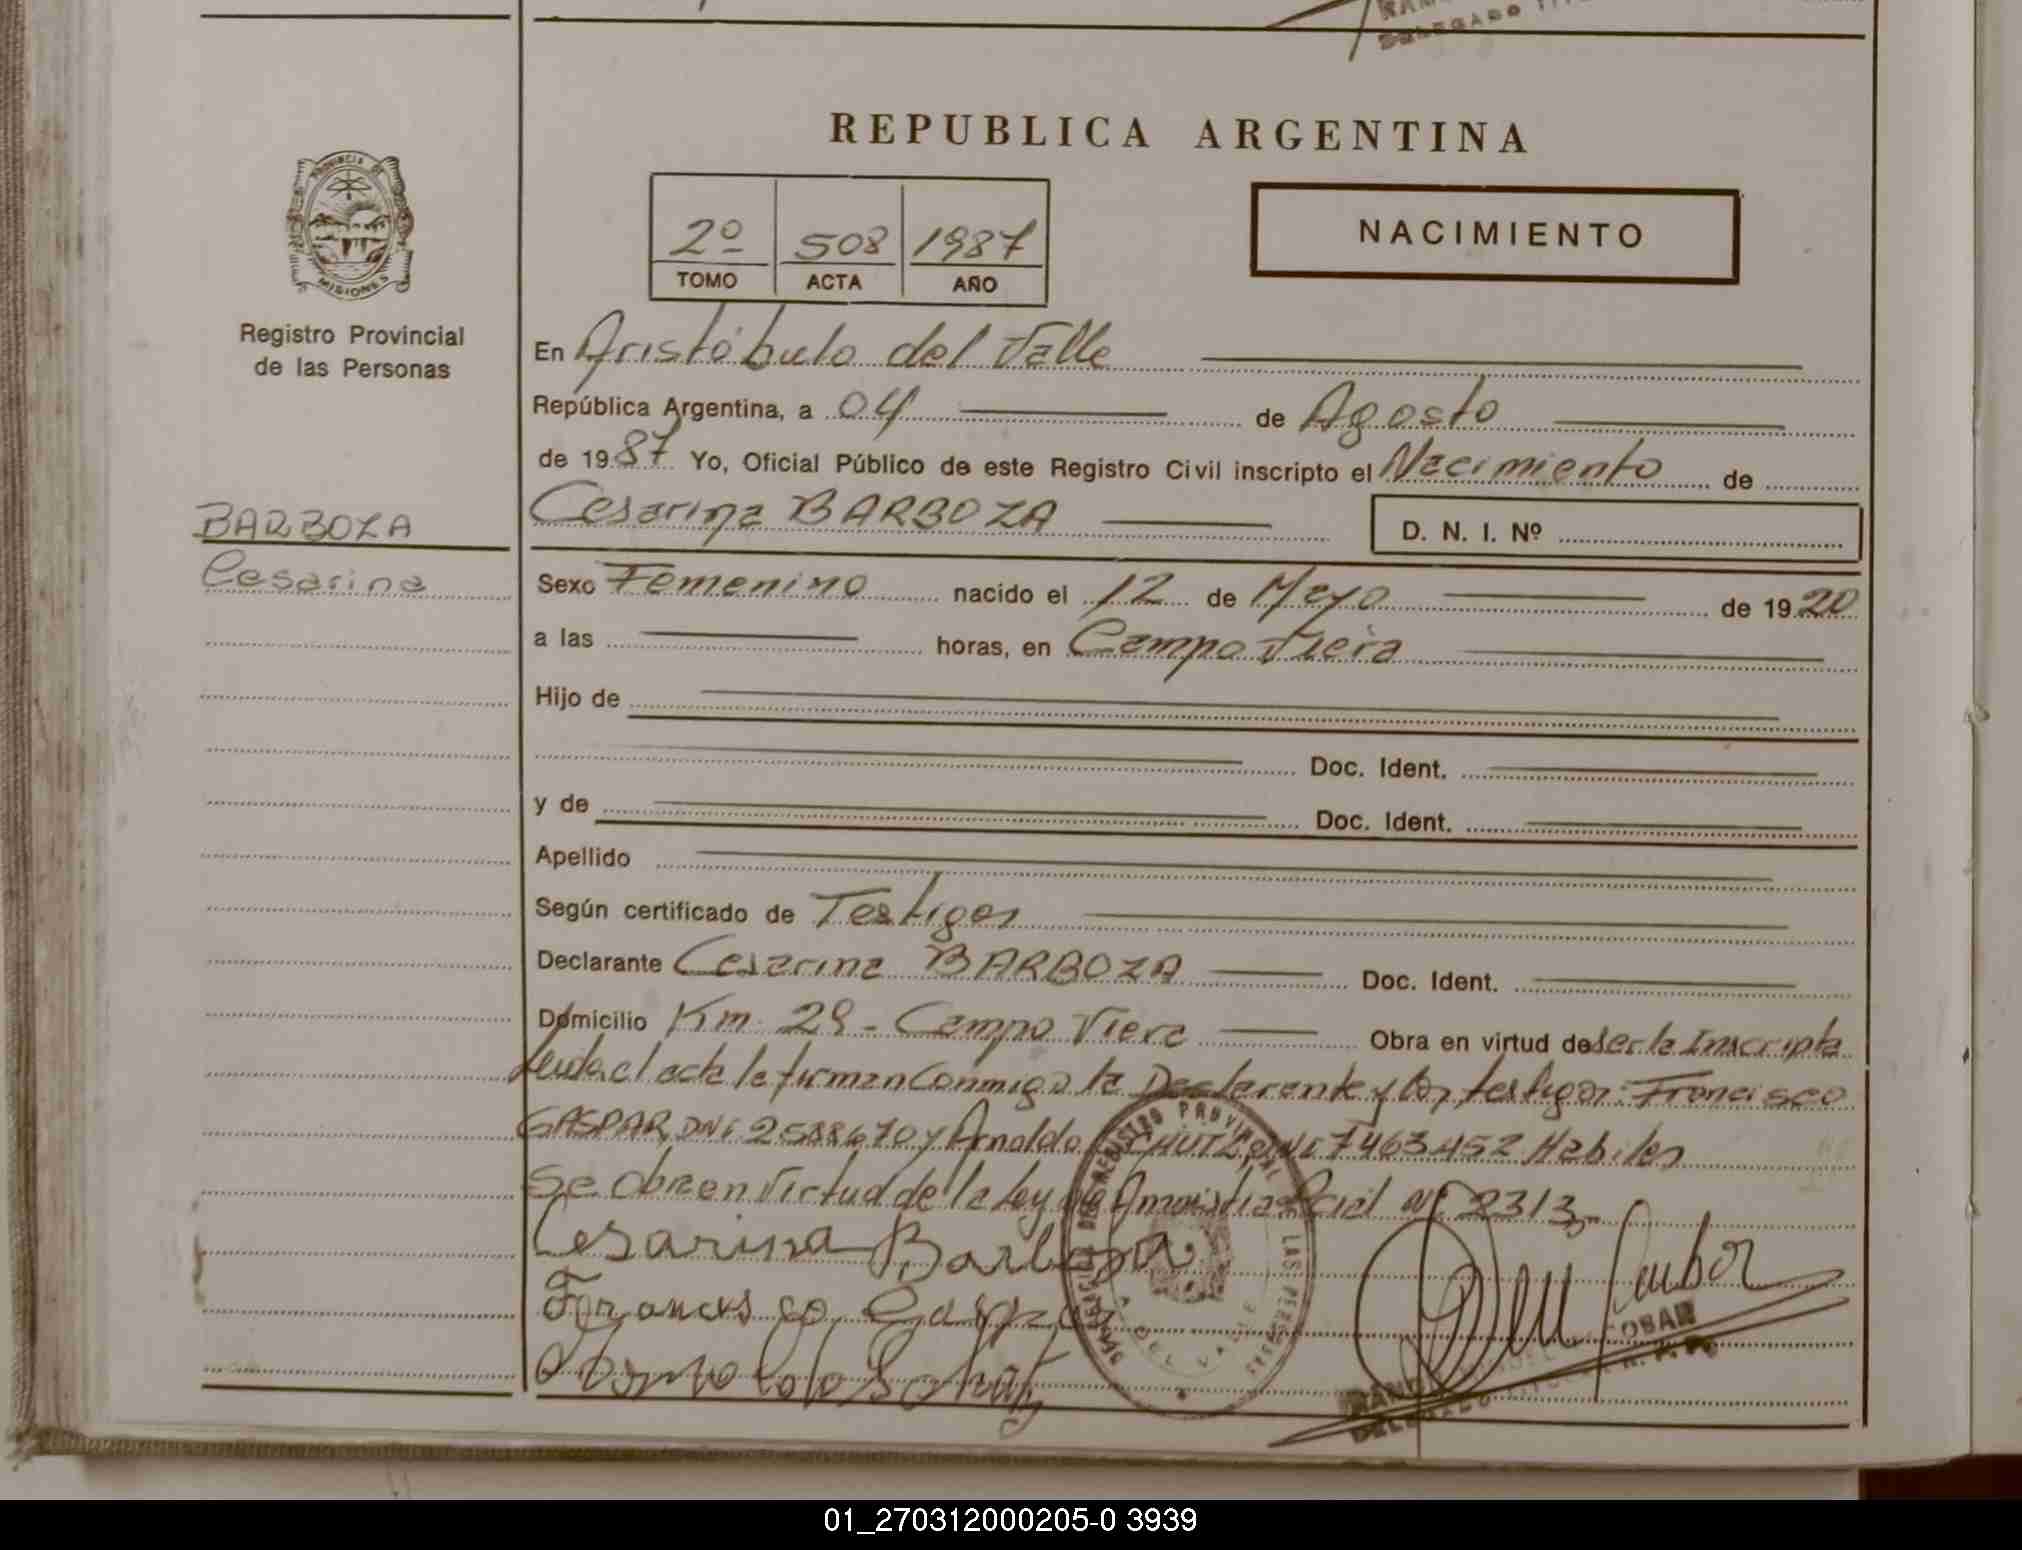 DELEGADO
REPUBLICA ARGENTINA
PROVINCIA DE
MISIONES
Registro Provincial
de las Personas
2º 508 1987
TOMO ACTA AÑO
NACIMIENTO
En Aristóbulo del Valle
República Argentina, a 04 de Agosto
de 1987 Yo, Oficial Público de este Registro Civil inscripto el Nacimiento de
BARBOZA
Cesarina
Cesarina BARBOZA D. N. I. Nº
Sexo Femenino nacido el 12 de Mayo de 1920
a las horas, en Campo Viera
Hijo de
Doc. Ident.
y de Doc. Ident.
Apellido
Según certificado de Testigos
Declarante Cesarina BARBOZA Doc. Ident.
Domicilio Km. 29 - Campo Viera Obra en virtud de ser la Inscripta
Leida el acta la firman Conmigo la Declarante y los testigos: Francisco
GASPAR, DNI 2588670 y Arnoldo DNI 7463452 Habiles
Se Obra en Virtud de la Ley de Amnistia Nº 2313-
Cesarina Barboza
DELEGACION DEL REGISTRO PROVINCIAL LAS PERSONAS
A. DEL VALLE
DELEGADO TITULAR
01_270312000205-0 3939